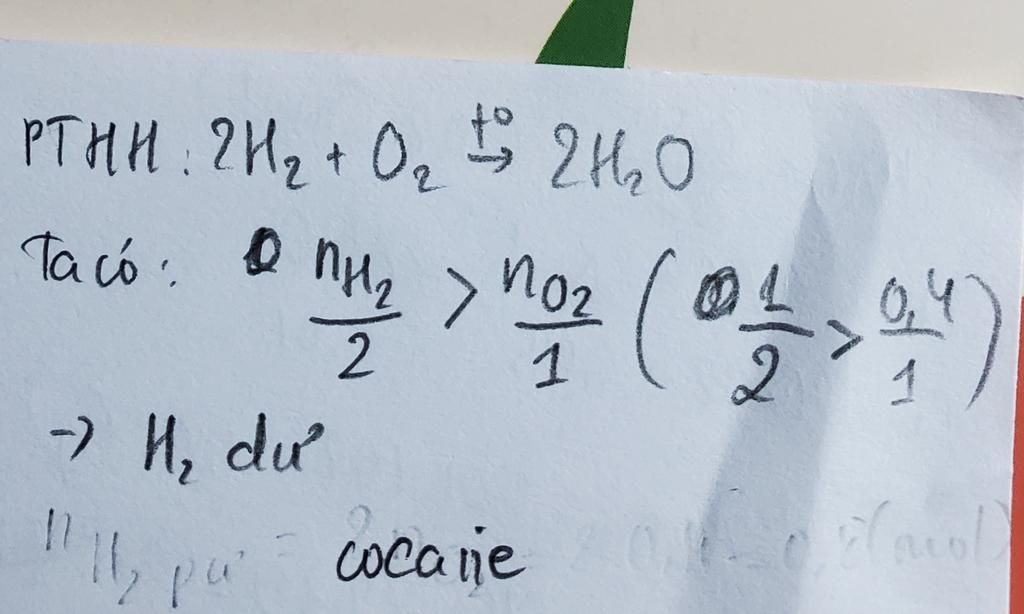 PTHH: 2H₂ + O₂ →(t°) 2H₂O
Ta có: nH₂/2 > nO₂/1 (1/2 > 0,4/1)
→ H₂ dư
nH₂ pư = cocaije